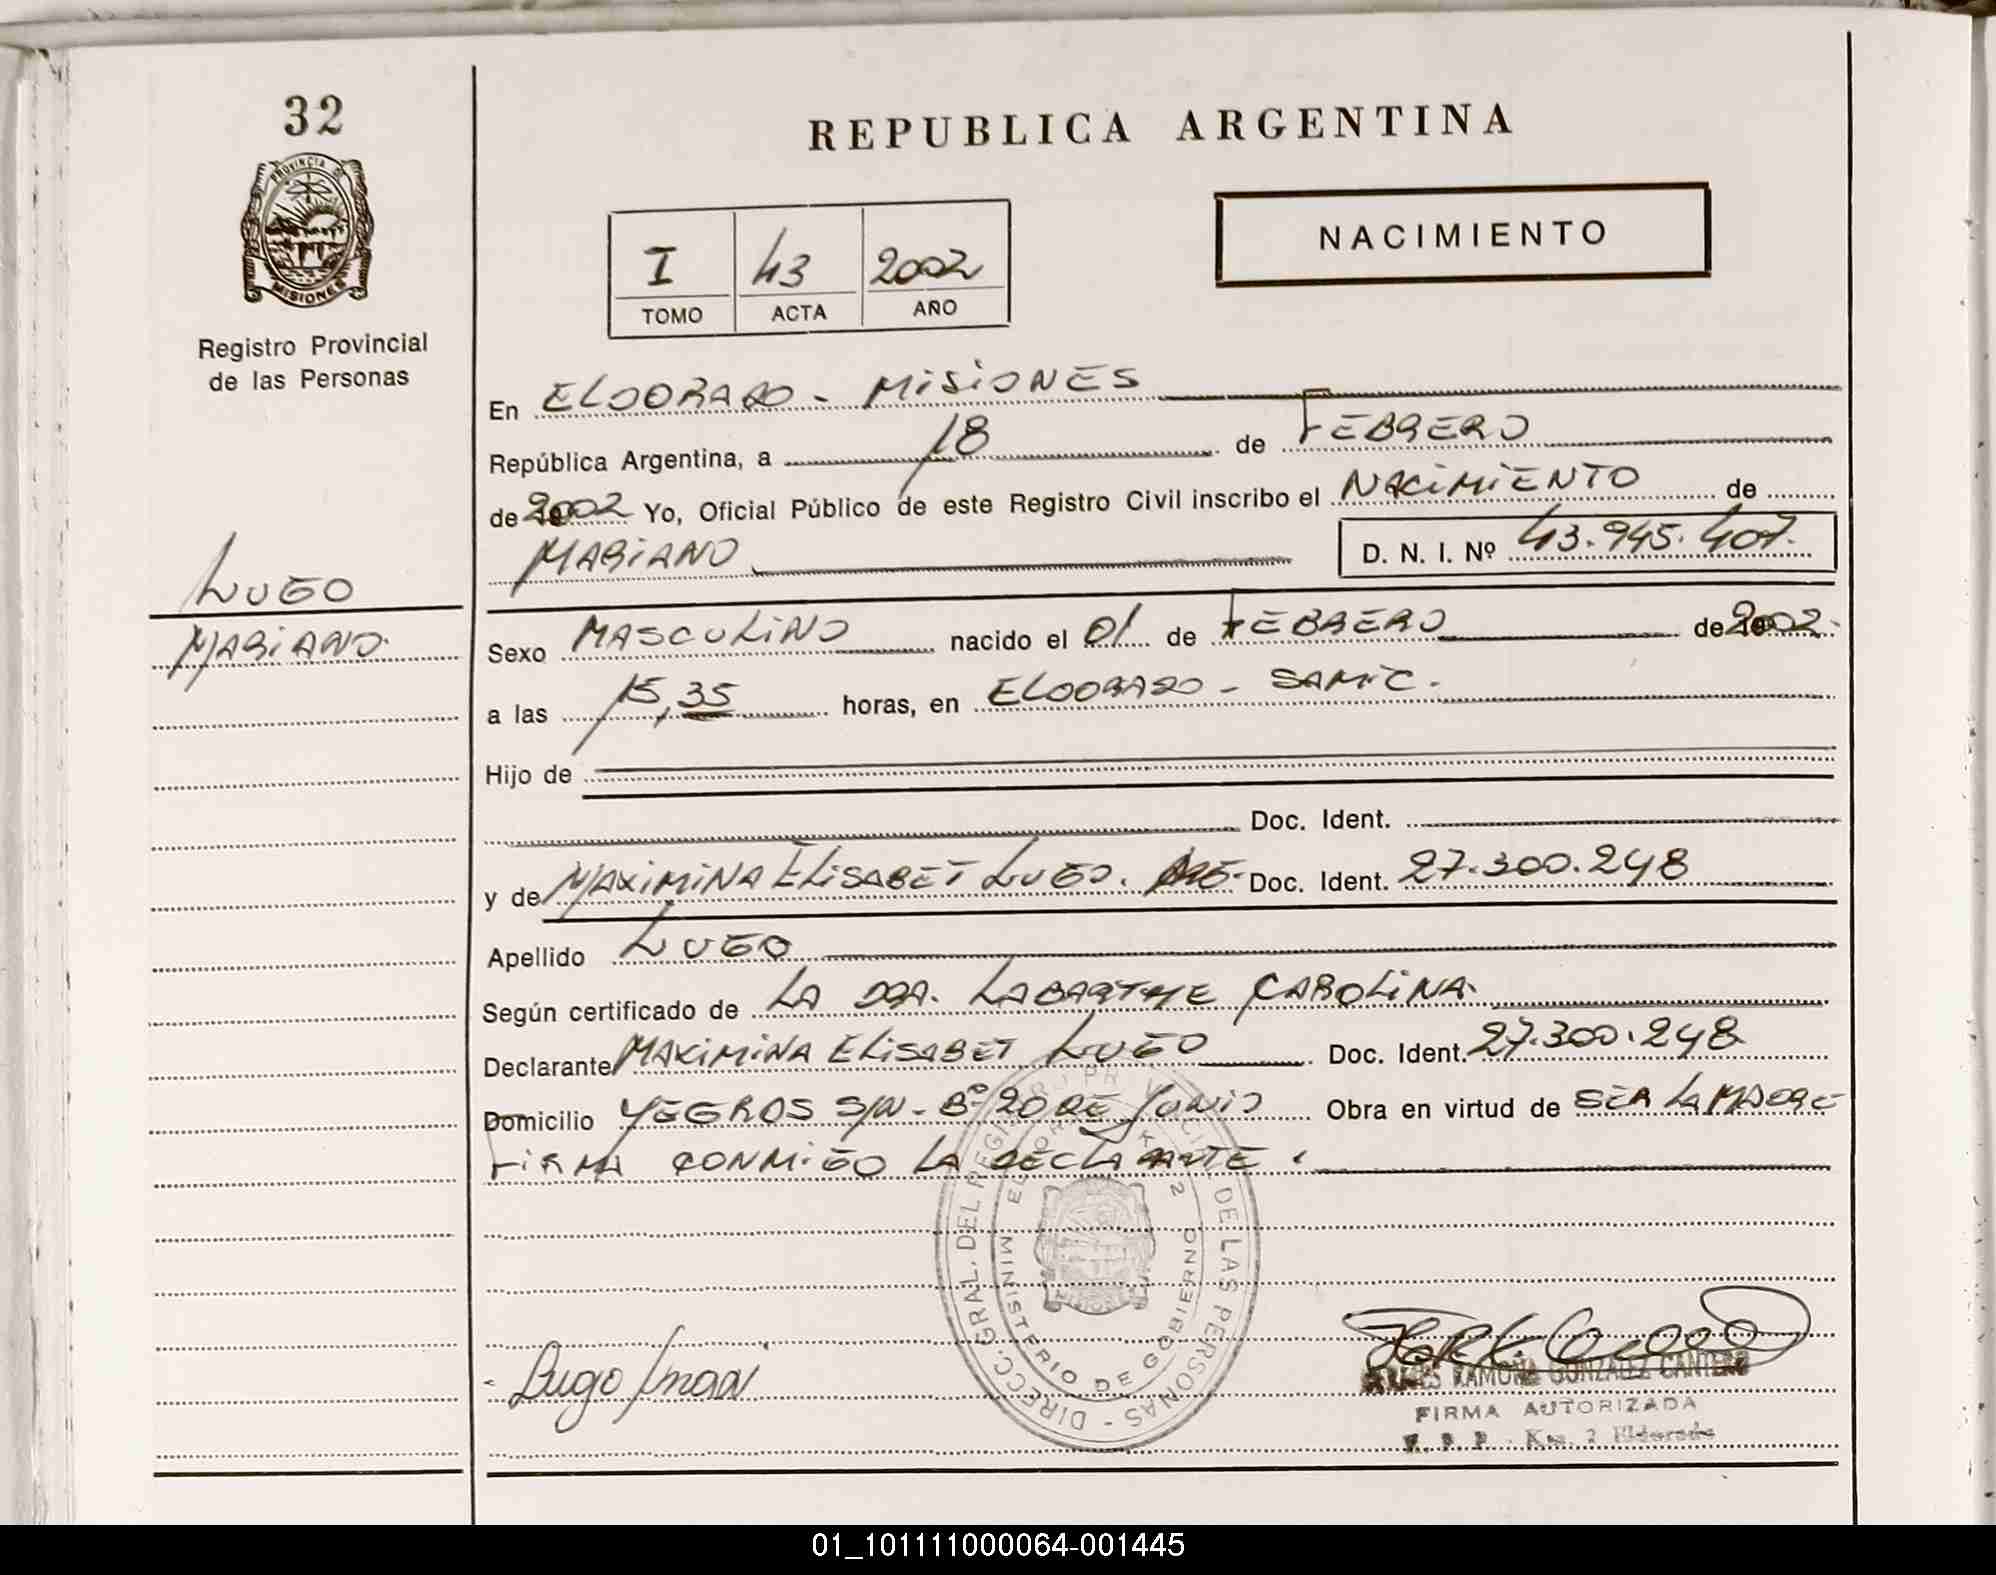 32
REPUBLICA ARGENTINA
PROVINCIA DE
MISIONES
Registro Provincial
de las Personas
NACIMIENTO
I 43 2002
TOMO ACTA AÑO
En ELDORADO - MISIONES
República Argentina, a 18 de FEBRERO
de 2002 Yo, Oficial Público de este Registro Civil inscribo el NACIMIENTO de
MARIANO D. N. I. Nº 43.945.407.
LUGO
MARIANO.
Sexo MASCULINO nacido el 01 de FEBRERO de 2002.
a las 15,35 horas, en ELDORADO - SAMIC.
Hijo de
Doc. Ident.
y de MAXIMINA ELISABET LUGO. Doc. Ident. 27.300.248
Apellido LUGO
Según certificado de LA DRA. LABARTHE CAROLINA.
Declarante MAXIMINA ELISABET LUGO Doc. Ident. 27.300.248
Domicilio YEGROS S/N - Bº 20 DE JUNIO Obra en virtud de SER LA MADRE
FIRMA CONMIGO LA DECLARANTE.
DIRECC. GRAL. DEL REGISTRO PROVINCIAL DE LAS PERSONAS
MINISTERIO DE GOBIERNO
ELDORADO KM 2
Lugo
RAMONA GONZALEZ CANTERO
FIRMA AUTORIZADA
R. P. P. - Km. 2 Eldorado
01_101111000064-001445